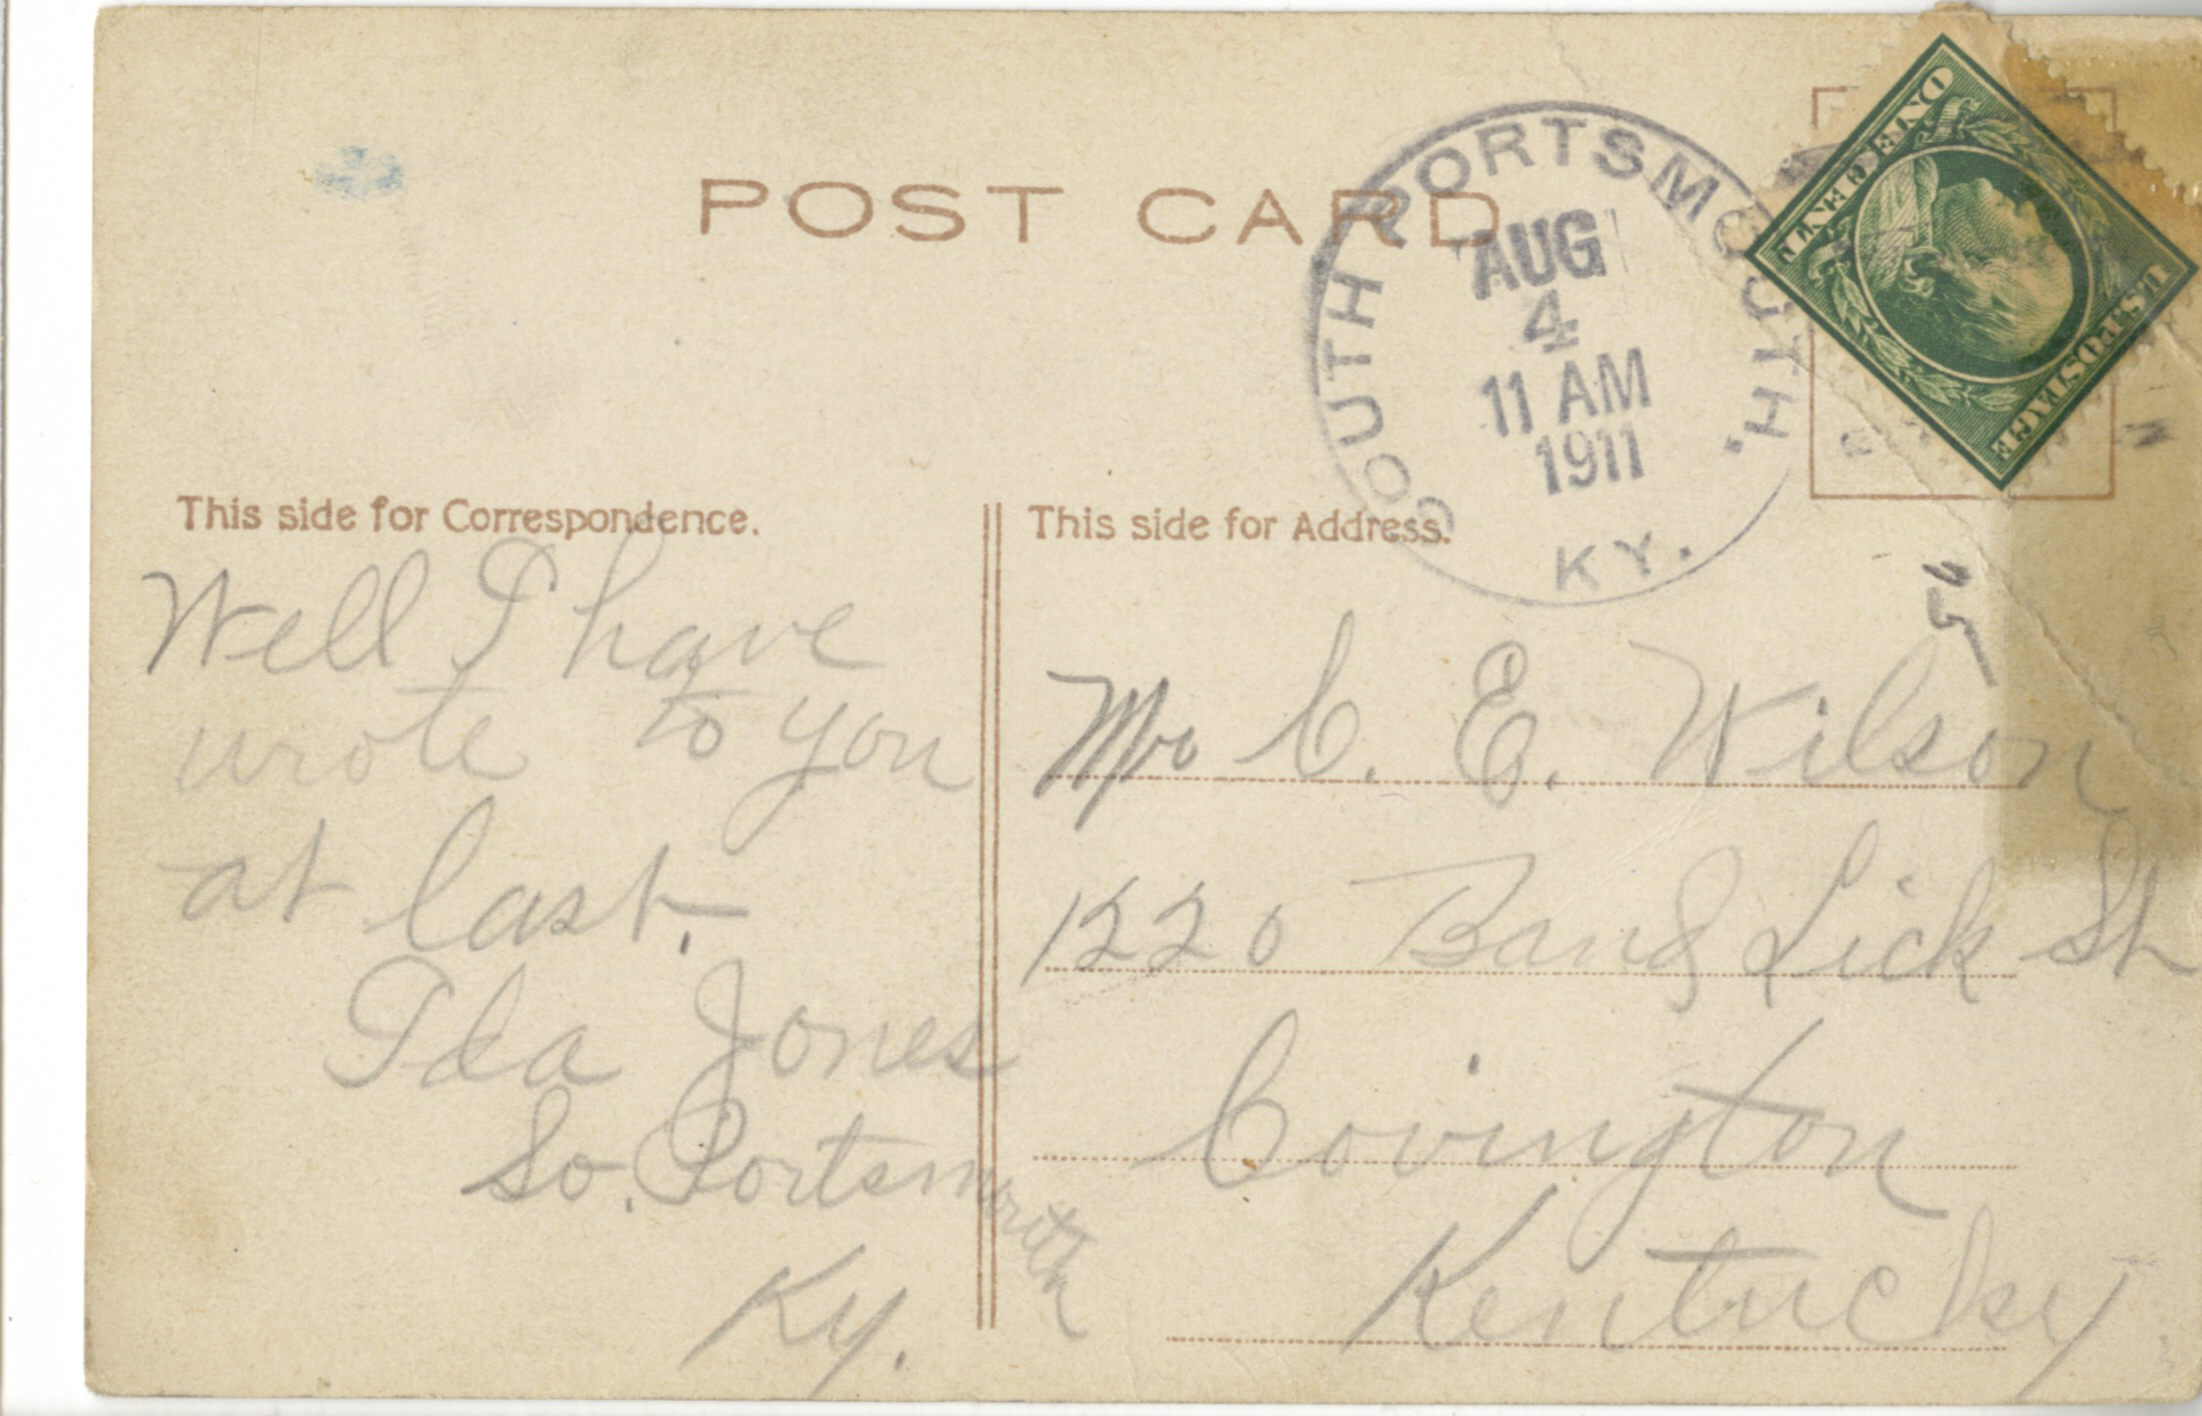 POST CARD
SOUTH PORTSMOUTH,
AUG
4
11 AM
1911
KY.
U.S. POSTAGE
This side for Correspondence.
Well I have
wrote to you
at last.
Ida Jones
So. Portsmouth
Ky.
This side for Address.
Mr C. E. Wilson
1220 Bang Lick St
Covington
Kentucky